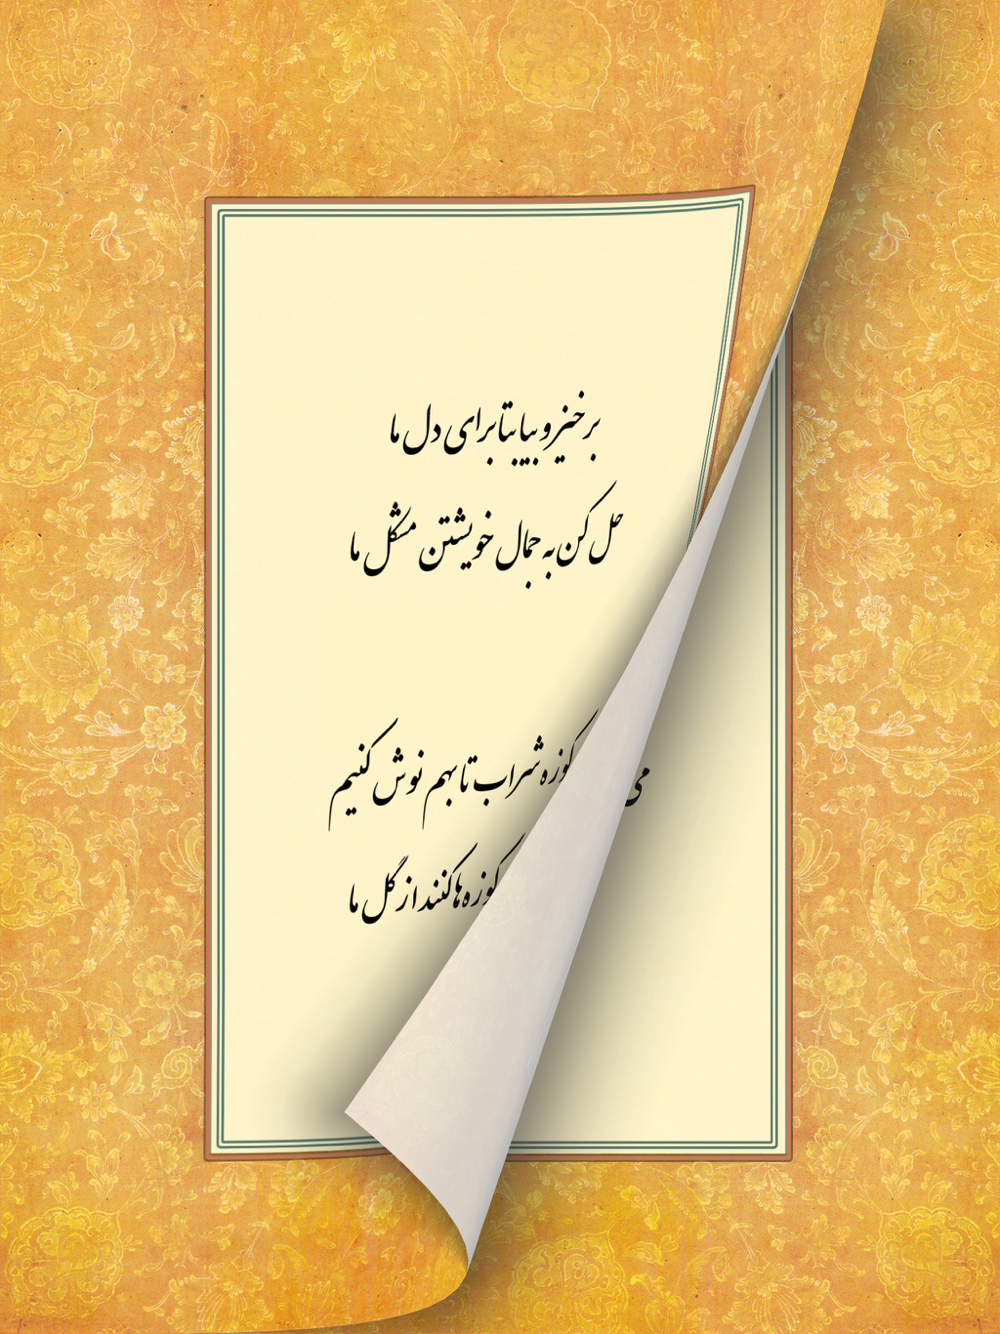 برخیز و بیا بتا برای دل ما
حل کن به جمال خویشتن مشکل ما
کوزه شراب تا بهم نوش کنیم
کوزه‌ها کنند از گل ما
می